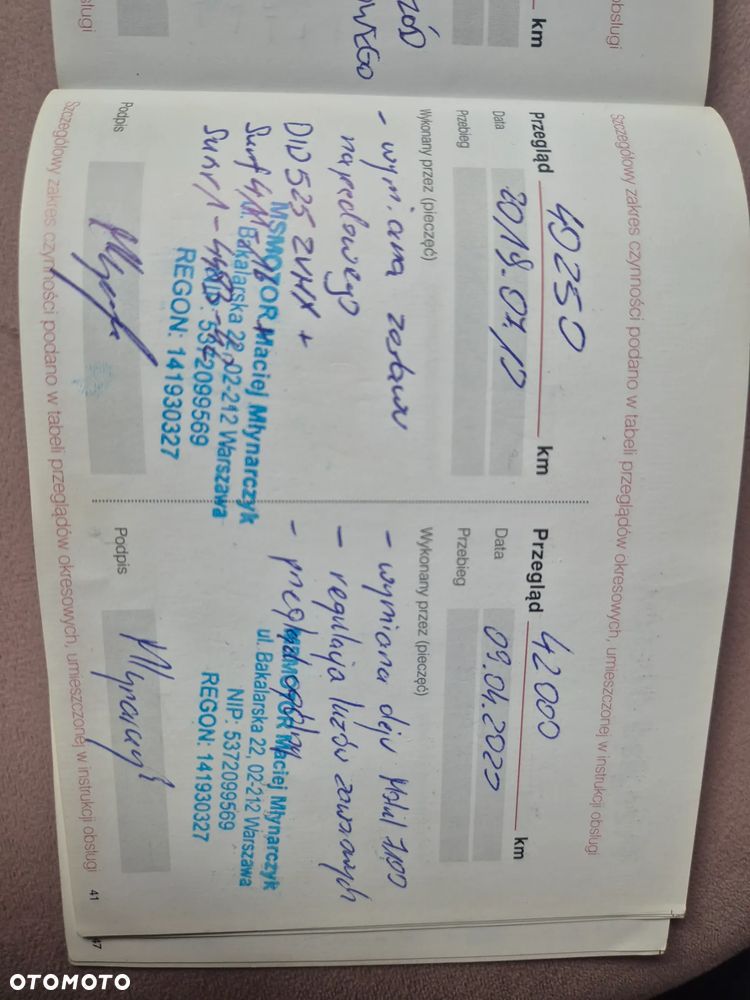 obsługi
km
ZÓD
OWEGO
ługi
Szczegółowy zakres czynności podano w tabeli przeglądów okresowych, umieszczonej w instrukcji obsługi
Przegląd 40250 km
Data 2018.07.10
Przebieg
Wykonany przez (pieczęć)
- wymiana zestawu
napędowego
DID 525 ZVMX +
Sunf
Sunr1 -
MSMOTOR Maciej Młynarczyk
ul. Bakalarska 22, 02-212 Warszawa
NIP: 5372099569
REGON: 141930327
Podpis
Przegląd 42000 km
Data 09.04.2020
Przebieg
Wykonany przez (pieczęć)
- wymiana oleju Motul 7100
- regulacja luzów zaworowych
- przegląd ogólny
MSMOTOR Maciej Młynarczyk
ul. Bakalarska 22, 02-212 Warszawa
NIP: 5372099569
REGON: 141930327
Podpis Młynarczyk
Szczegółowy zakres czynności podano w tabeli przeglądów okresowych, umieszczonej w instrukcji obsługi
41
47
OTOMOTO